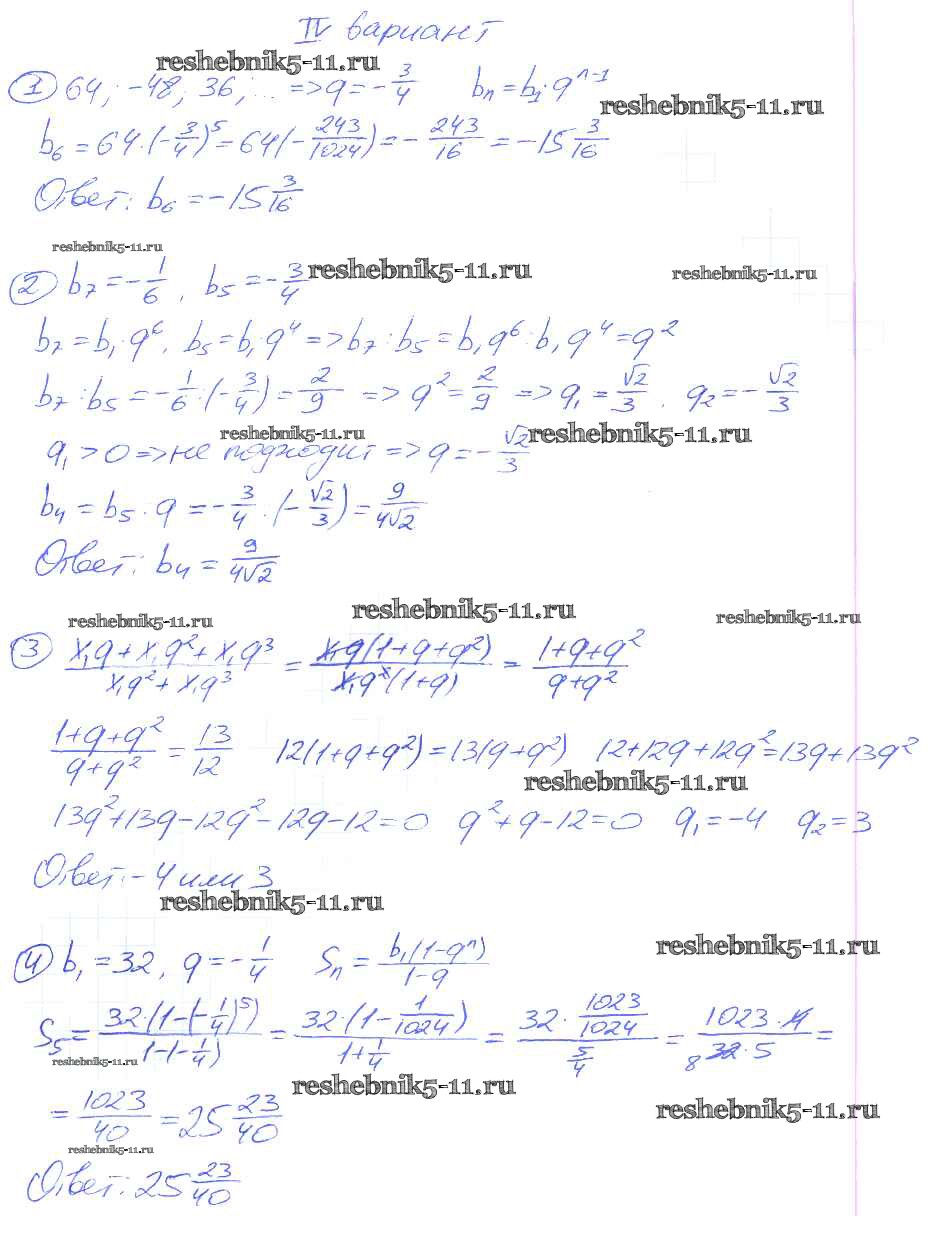 IV вариант
reshebnik5-11.ru
1 64; -48; 36; ... => q = -3/4 bₙ = b₁·qⁿ⁻¹
reshebnik5-11.ru
b₆ = 64·(-3/4)⁵ = 64(-243/1024) = -243/16 = -15 3/16
Ответ: b₆ = -15 3/16
reshebnik5-11.ru
2 b₇ = -1/6, b₅ = -3/4 reshebnik5-11.ru reshebnik5-11.ru
b₇ = b₁·q⁶, b₅ = b₁·q⁴ => b₇:b₅ = b₁q⁶:b₁q⁴ = q²
b₇:b₅ = -1/6:(-3/4) = 2/9 => q² = 2/9 => q₁ = √2/3, q₂ = -√2/3
reshebnik5-11.ru reshebnik5-11.ru
q₁ > 0 => не подходит => q = -√2/3
b₄ = b₅:q = -3/4:(-√2/3) = 9/4√2
Ответ: b₄ = 9/4√2
reshebnik5-11.ru reshebnik5-11.ru reshebnik5-11.ru
3 (x₁q + x₁q² + x₁q³)/(x₁q² + x₁q³) = x₁q(1+q+q²)/x₁q²(1+q) = (1+q+q²)/(q+q²)
(1+q+q²)/(q+q²) = 13/12 12(1+q+q²) = 13(q+q²) 12+12q+12q² = 13q+13q²
reshebnik5-11.ru
13q²+13q-12q²-12q-12=0 q²+q-12=0 q₁=-4 q₂=3
Ответ: -4 или 3
reshebnik5-11.ru
4 b₁ = 32, q = -1/4 Sₙ = b₁(1-qⁿ)/1-q reshebnik5-11.ru
S₅ = 32·(1-(-1/4)⁵)/1-(-1/4) = 32·(1-1/1024)/1+1/4 = 32·1023/1024/5/4 = 1023·4/8 32·5 =
reshebnik5-11.ru
reshebnik5-11.ru
= 1023/40 = 25 23/40 reshebnik5-11.ru
reshebnik5-11.ru
Ответ: 25 23/40